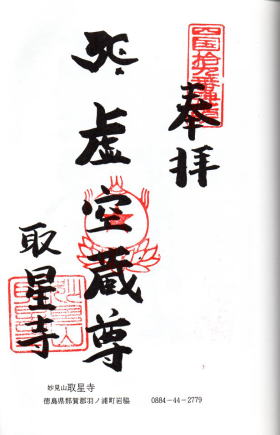 四国拾九番
奉拝
虚空蔵尊
取星寺
妙見山 取星寺
徳島県那賀郡羽ノ浦町岩脇 0884-44-2779